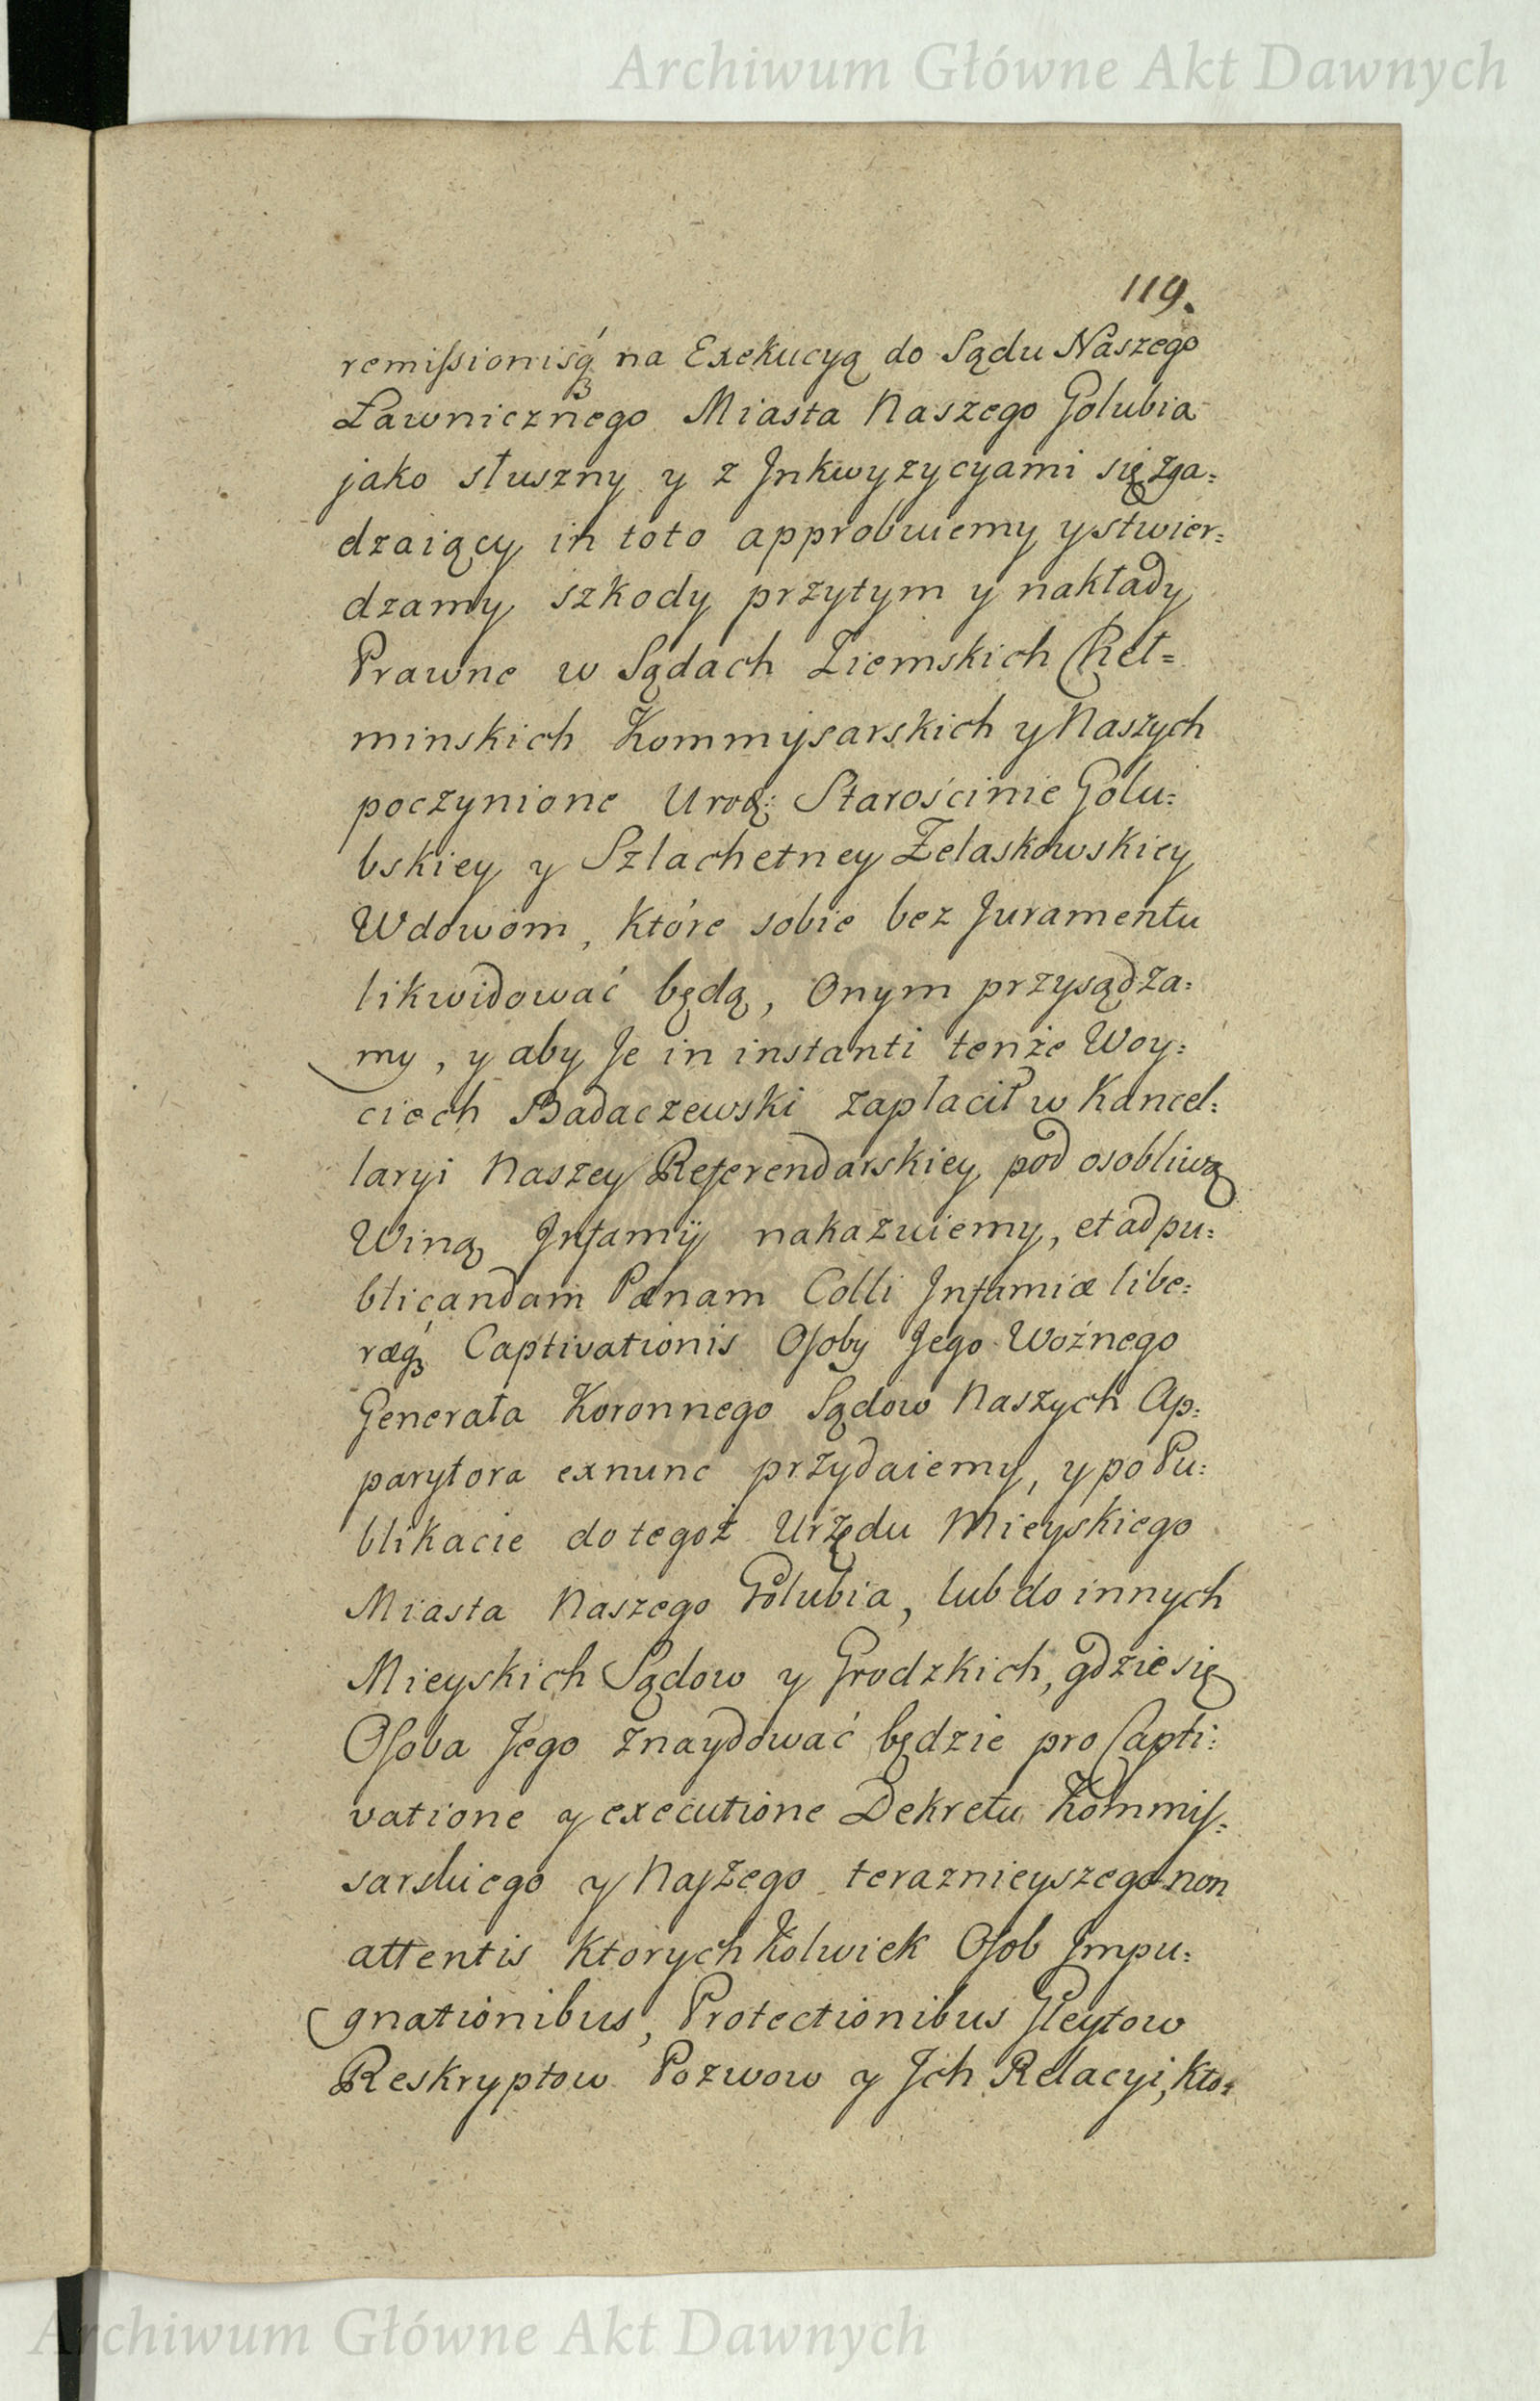 Archiwum Główne Akt Dawnych
119.
remissionisq́ʒ na Exekucyą do Sądu Naszego
Ławnicznego Miasta Naszego Golubia
jako słuszny y z Jnkwyzycyami się zga=
dzaiący in toto approbuiemy y stwier=
dzamy szkody przytym y nakłady
Prawne w Sądach Ziemskich Cheł=
minskich Kommysarskich y Naszych
poczynione Urod: Starościnie Golu=
bskiey y Szlachetney Żelaskowskiey
Wdowom, które sobie bez Juramentu
likwidować będą, Onym przysądza=
my, y aby Je in instanti tenże Woy=
ciech Badaczewski zapłacił w Kancel=
laryi Naszey Referendarskiey pod osobliwą
Winą Jnfamÿ nakazuiemy, et ad pu=
blicandam Pænam Colli Jnfamiæ libe=
ræq́ʒ Captivationis Osoby Jego Woźnego
Generała Koronnego Sądow Naszych Ap=
parytora exnunc przydaiemy, y po Pu=
blikacie do tegoż Urzędu Mieyskiego
Miasta Naszego Golubia, lub do innych
Mieyskich Sądow y Grodzkich, gdzie się
Osoba Jego znaydować będzie pro Capti=
vatione y executione Dekretu Kommis=
sarskiego y Naszego teraznieyszego non
attentis ktorychkolwiek Osob Jmpu=
gnationibus, Protectionibus Gleytow
Reskryptow Pozwow y Jch Relacyi, kto=
Archiwum Główne Akt Dawnych